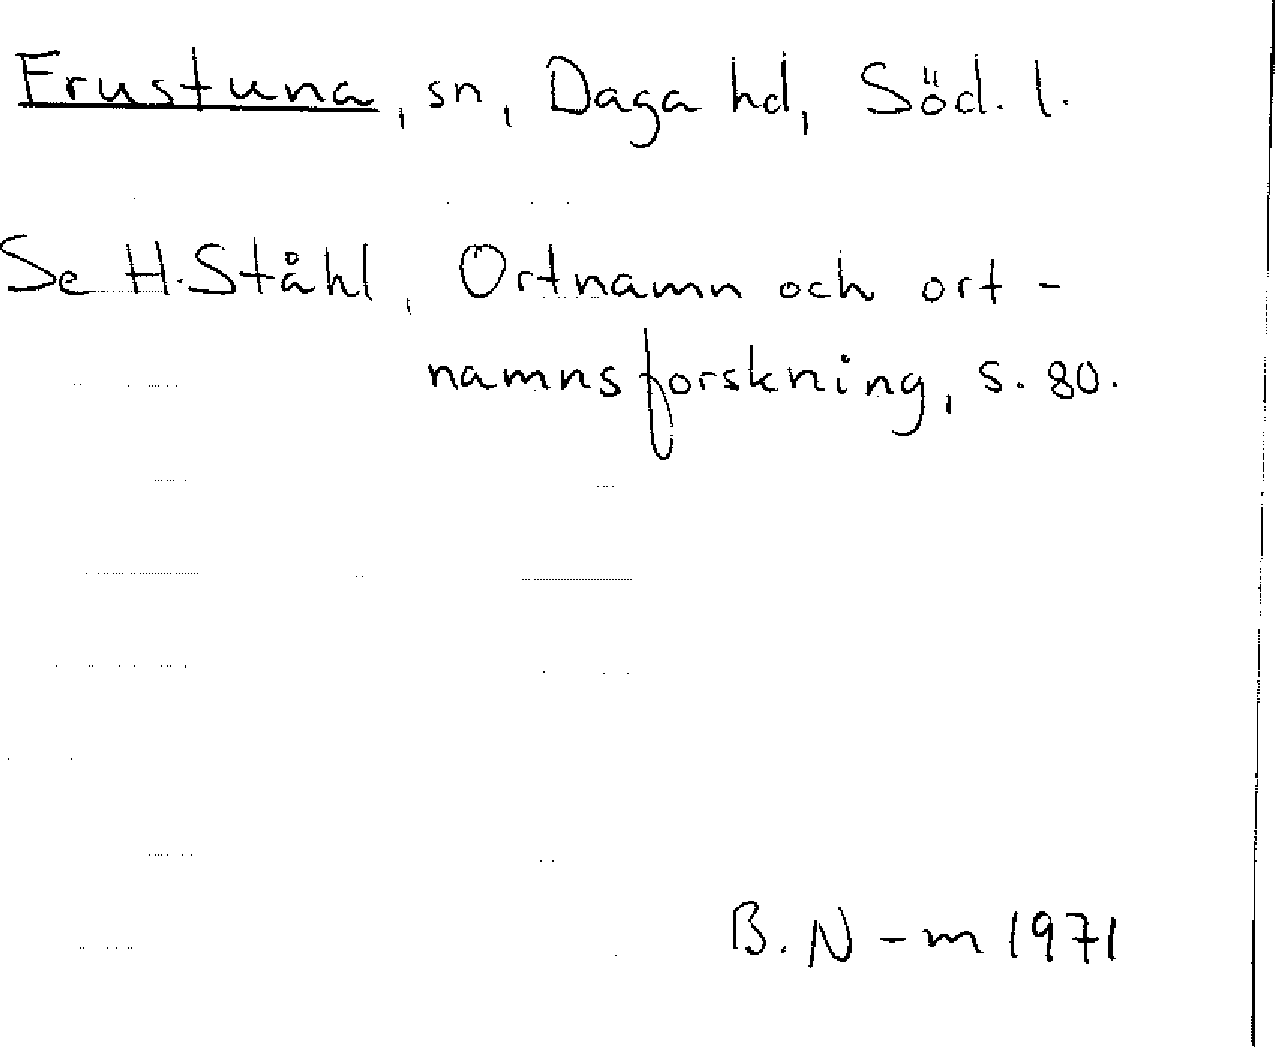 Frustuna, sn, Daga hd, Söd. l.
Se H. Ståhl, Ortnamn och ort-
namnsforskning, s. 80.
B. N-m 1971